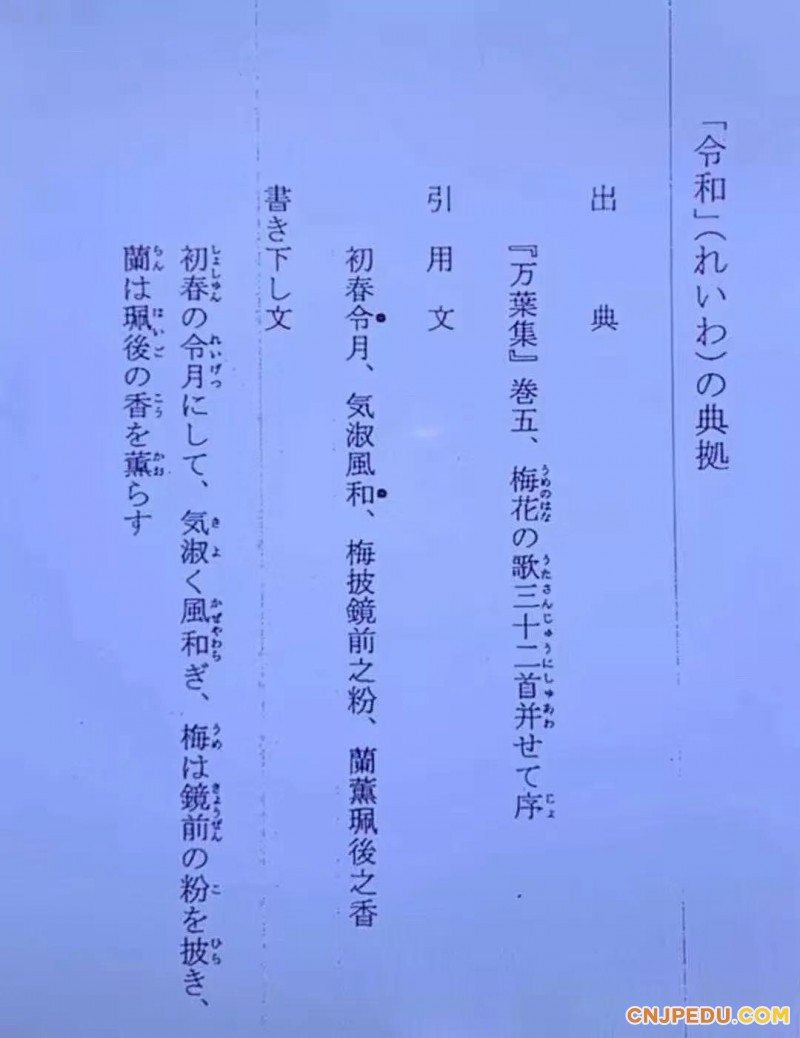 「令和」（れいわ）の典拠
出典
『万葉集』巻五、梅花の歌三十二首并せて序
うめのはな うたさんじゅうにしゅあわ じょ
引用文
初春令月、気淑風和、梅披鏡前之粉、蘭薫珮後之香
書き下し文
初春の令月にして、気淑く風和ぎ、梅は鏡前の粉を披き、
しょしゅん れいげつ きよ かぜやわら うめ きょうぜん こ ひら
蘭は珮後の香を薫らす
らん はいご こう かお
CNJPEDU.COM